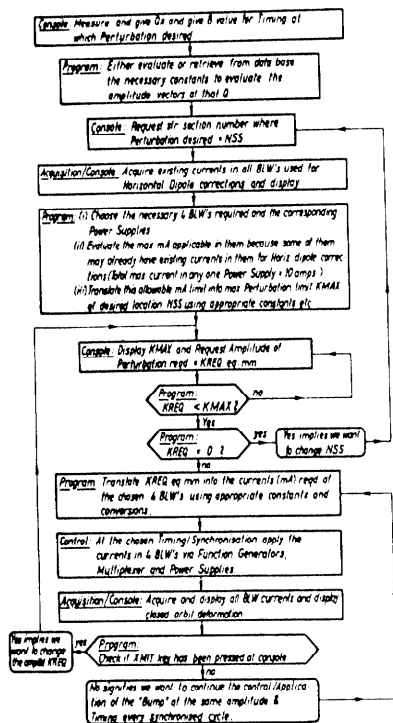 Console: Measure and give Qx and give B value for Timing at
which Perturbation desired
Program: Either evaluate or retrieve from data base
the necessary constants to evaluate the
amplitude vectors at that Q
Console: Request str section number where
Perturbation desired = NSS
Acquisition/Console: Acquire existing currents in all BLW's used for
Horizontal Dipole corrections and display
Program: (i) Choose the necessary 4 BLW's required and the corresponding
Power Supplies
(ii) Evaluate the max mA applicable in them because some of them
may already have existing currents in them for Horiz dipole correc
tions (Total max current in any one Power Supply = 10 amps)
(iii) Translate this allowable mA limit into max Perturbation limit KMAX
at desired location NSS using appropriate constants etc
Console: Display KMAX and Request Amplitude of
Perturbation reqd = KREQ eq.mm
Program:
KREQ < KMAX ?
no
Yes
Program:
KREQ = 0 ?
yes
Yes implies we want
to change NSS
no
Program: Translate KREQ eq mm into the currents (mA) reqd at
the chosen 4 BLW's using appropriate constants and
conversions.
Control: At the chosen Timing/Synchronisation apply the
currents in 4 BLW's via Function Generators,
Multiplexer and Power Supplies
Acquisition/Console: Acquire and display all BLW currents and display
closed orbit deformation
Yes implies we
want to change
the amplit KREQ
yes
Program:
Check if XMIT key has been pressed at console
no
No signifies we want to continue the control/Applica
tion of the "Bump" at the same amplitude &
Timing every synchronised cycle.